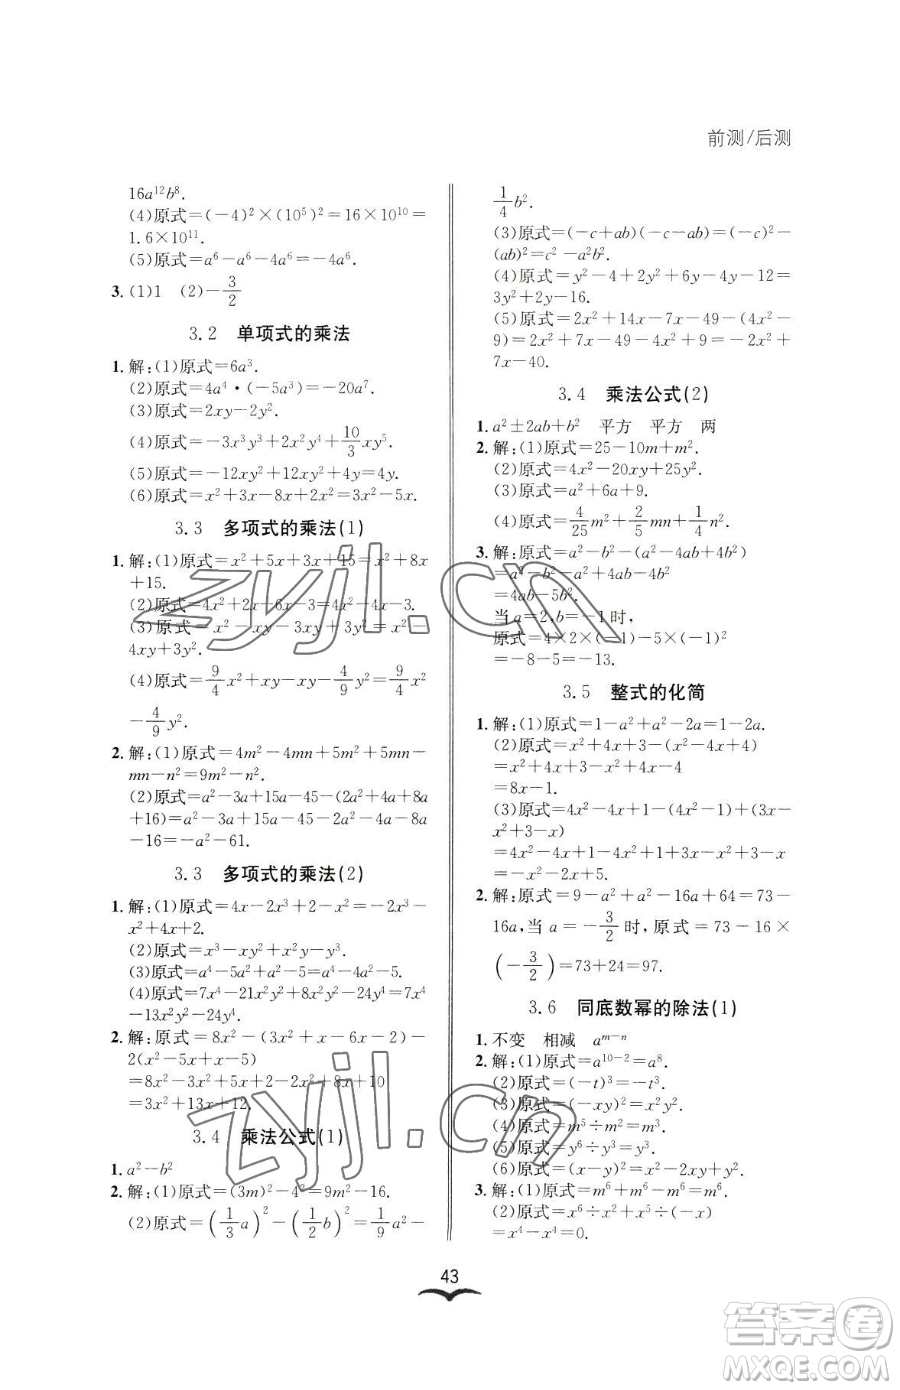 前测/后测
16a¹²b⁸.
(4)原式=(-4)²×(10⁵)²=16×10¹⁰=
1.6×10¹¹.
(5)原式=a⁶-a⁶-4a⁶=-4a⁶.
3. (1)1 (2)-3/2
3.2 单项式的乘法
1. 解:(1)原式=6a³.
(2)原式=4a⁴·(-5a³)=-20a⁷.
(3)原式=2xy-2y².
(4)原式=-3x³y³+2x²y⁴+10/3xy⁵.
(5)原式=-12xy²+12xy²+4x=4x.
(6)原式=x²+3x-8x+2x²=3x²-5x.
3.3 多项式的乘法(1)
1. 解:(1)原式=x²+5x+3x+15=x²+8x
+15.
(2)原式=4x²+2x-6x-3=4x²-4x-3.
(3)原式=x²
4xy+3y².
(4)原式=9/4x²+xy-xy-4/9y²=9/4x²
-4/9y².
2. 解:(1)原式=4m²-4mn+5m²+5mn-
mn-n²=9m²-n².
(2)原式=a²-3a+15a-45-(2a²+4a+8a
+16)=a²-3a+15a-45-2a²-4a-8a
-16=-a²-61.
3.3 多项式的乘法(2)
1. 解:(1)原式=4x-2x³+2-x²=-2x³-
x²+4x+2.
(2)原式=x³-xy-x²y²+y³.
(3)原式=a⁴-5a²+a²-5=a⁴-4a²-5.
(4)原式=7x⁴-21x²y²+8x²y²-24y⁴=7x⁴-
13x²y²-24y⁴.
2. 解:原式=8x²-(3x²+x-6x-2)-
2(x²-5x-x+5)
=8x²-3x²-x+6x+2-2x²+10x+2x-10
=3x²+
3.4 乘法公式(1)
1. a²-b²
2. 解:(1)原式=(3m)²-4²=9m²-16.
(2)原式=(1/3a)²-(1/2b)²=1/9a²-
1/4b².
(3)原式=(-c+ab)(-c-ab)=(-c)²-
(ab)²=c²-a²b².
(4)原式=y²-4+2y²+6y-4y-12=
3y²+2y-16.
(5)原式=2x²+14x-7x-49-(4x²-
9)=2x²+7x-49-4x²+9=-2x²+
7x-40.
3.4 乘法公式(2)
1. a²±2ab+b² 平方 平方 两
2. 解:(1)原式=25-10m+m².
(2)原式=4x²-20xy+25y².
(3)原式=a²+6a+9.
(4)原式=4/25m²+2/5mn+1/4n².
3. 解:原式=a²-b²-(a²-4ab+4b²)
=a²-b²-a²+4ab-4b²
=4ab-5b².
当a=2,b=-1时,
原式=4×2×(-1)-5×(-1)²
=-8-5=-13.
3.5 整式的化简
1. 解:(1)原式=1-a²+a²-2a=1-2a.
(2)原式=x²+4x+3-(x²-4x+4)
=x²+4x+3-x²+4x-4
=8x-1.
(3)原式=4x²-4x+1-(4x²-1)+(3x²
+3-x)
=4x²-4x+1-4x²+1+3x²+3-x
=3x²-5x+5.
2. 解:原式=9-a²+a²-16a+64=73-
16a,当a=-3/2时,原式=73-16×
(-3/2)=73+24=97.
3.6 同底数幂的除法(1)
1. 不变 相减 aᵐ⁻ⁿ
2. 解:(1)原式=a¹⁰⁻²=a⁸.
(2)原式=(-t)³=-t³.
(3)原式=(-xy)²=x²y².
(4)原式=m⁵÷m²=m³.
(5)原式=y⁶÷y³=y³.
(6)原式=(x-y)⁶÷(x-y)²=(x-y)⁴.
3. 解:(1)原式=m⁶+m⁶-m⁶=m⁶.
(2)原式=x⁶÷x²+x⁵÷(-x)
=x⁴-x⁴=0.
43
zyjl.cn
zyjl.cn
答案圈
MXQE.COM